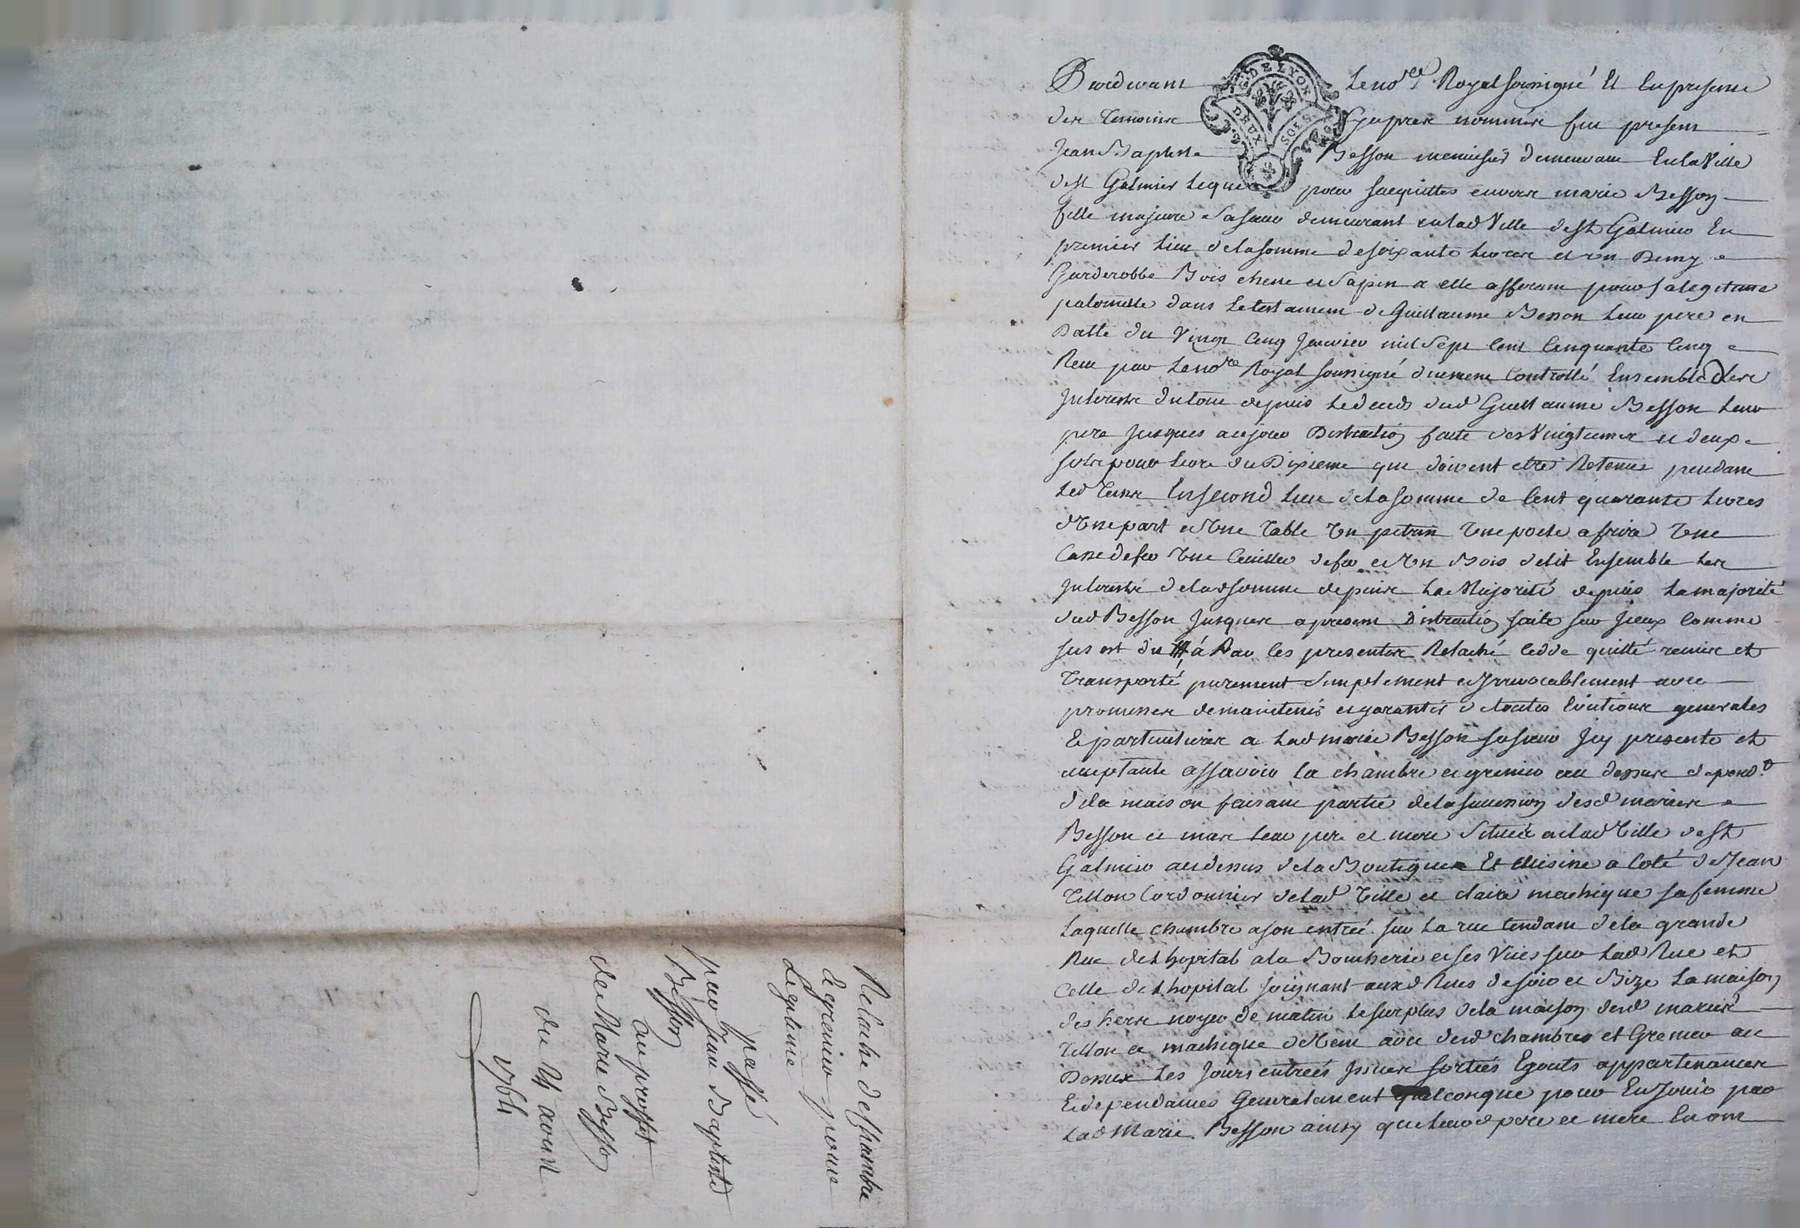 Relache de chambre
et grenier pour
Legitime
passé
par Jean Baptiste
Besson
au proffit
de Marie Besson
du 24 avril
1764
G. DE LYON
DEUX SOLS
Pardevant Le no.re Royal soussigné Et En presence
des Temoins Cy apres nommés fut present
Jean Baptiste Besson menuisier demeurant En la Ville
de St Galmier Lequel pour sacquitter envers marie Besson
fille majeure sa sœur demeurant en lad Ville de St Galmier En
premier Lieu de la somme de soixante Livres et un Demy
Garderobbe Bois chene et sapin a elle afferant pour sa legitime
paternelle dans Le testament de Guillaume Besson Leur pere en
Datte du Vingt Cinq Janvier mil sept Cent Cinquante Cinq
Recu par Le no.re Royal soussigné duement Controllé Ensemble Des
Interests du tout depuis Le deceds dud Guillaume Besson Leur
pere Jusques aujour Distraction faite des Vingtiemes et deux
sols pour Livre du Dixieme qui doivent etre Retenus pendant
Led Tems En second Lieu de la somme de Cent quarante Livres
d'Une part et Une Table Un petrin Une poele a frire Une
Casse de fer Une Cuiller de fer et Un Bois de lit Ensemble Les
Interests de lad somme depuis La Majorité depuis La majorité
dud Besson Jusques a present Distraction faite sur Iceux Comme
sus est dit a Par Ces presentes Relaché Cedde quitté remis et
Transporté purement simplement et Irrevocablement avec
promesse de maintenir et garantir de toutes Evictions generales
Et particulieres a Lad marie Besson sa sœur Icy presente et
acceptante assavoir La chambre et grenier au dessus depend.t
de la maison faisant partie de la succession desd mariés
Besson et mare Leur pere et mere Située a lad Ville de St
Galmier au dessus de la Boutique Et Cuisine a Coté de Jean
Tillon Cordonnier de lad Ville et claire machique sa femme
Laquelle chambre a son entrée sur La rue tendant de la grande
Rue de L hopital a la Boucherie et ses Vues sur Lad Rue et
Celle de L hopital Joignant auxd Rues de soir et Bize La maison
des hers noyer de matin Le surplus de la maison desd mariés
Tillon et machique de Vent avec desd chambres et Grenier au
Dessus Les Jours entrées Issues sorties Egouts appartenances
Et dependances Generalement quelconque pour En Jouir par
Lad Marie Besson ainsy que Leurd pere et mere En ont